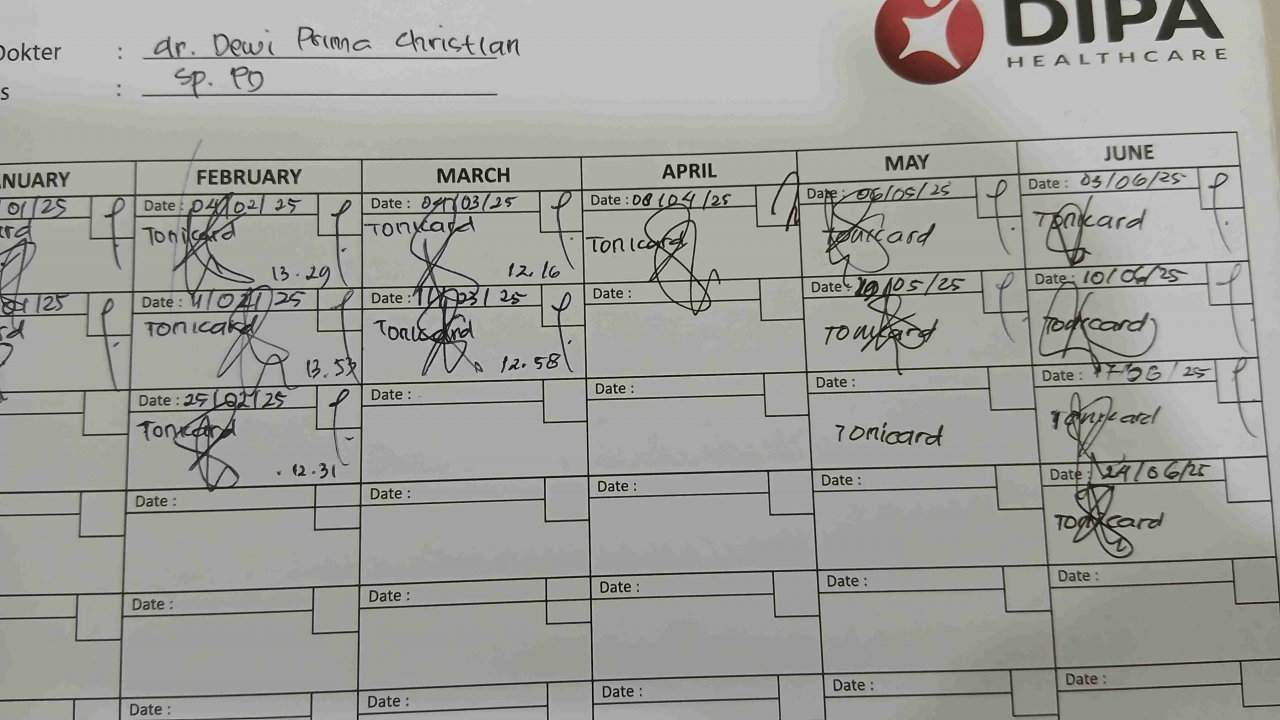 Dokter : dr. Dewi Prima Christian
s : Sp. PD
DIPA
HEALTHCARE
NUARY FEBRUARY MARCH APRIL MAY JUNE
01/25 Date : 04/02/25 Date : 04/03/25 Date : 08/04/25 Date : 06/05/25 Date : 03/06/25
ard Tonicard Tonicard Tonicard Tonicard Tonicard
13.29 12.16
01/25 Date : 11/02/25 Date : 11/03/25 Date : Date : /05/25 Date : 10/06/25
rd Tonicard Tonicard Tonicard Tonicard
13.53 12.58
Date : 25/02/25 Date : Date : Date : Date : /25
Tonicard Tonicard Tonicard
12.31
Date : Date : Date : Date : Date : 24/06/25
Tonicard
Date : Date : Date : Date : Date :
Date : Date : Date : Date :